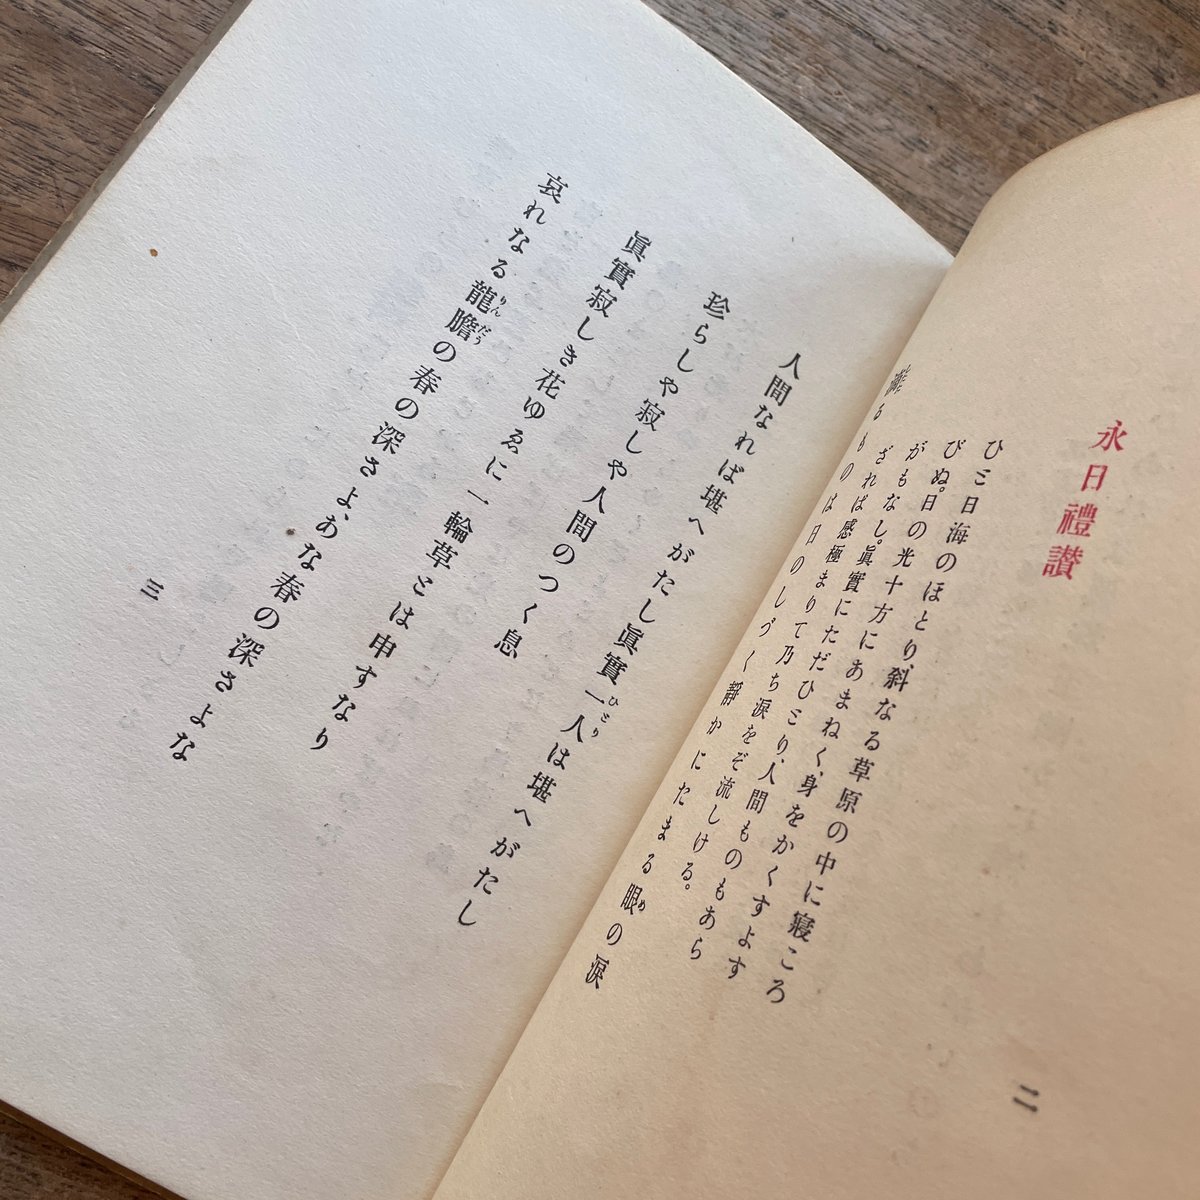 永日禮讃
ひと日海のほとり、斜なる草原の中に寝ころ
びぬ。日の光十方にあまねく、身をかくすよす
がもなし。眞實にただひとり、人間ものもあら
ざれば感極まりて乃ち涙をぞ流しける。
め
滴るものは日のしづく靜かにたまる眼の涙
二
ひとり
人間なれば堪へがたし眞實一人は堪へがたし
珍らしや寂しや人間のつく息
眞實寂しき花ゆゑに一輪草とは申すなり
りんだう
哀れなる龍膽の春の深さよ、あな春の深さよな
三